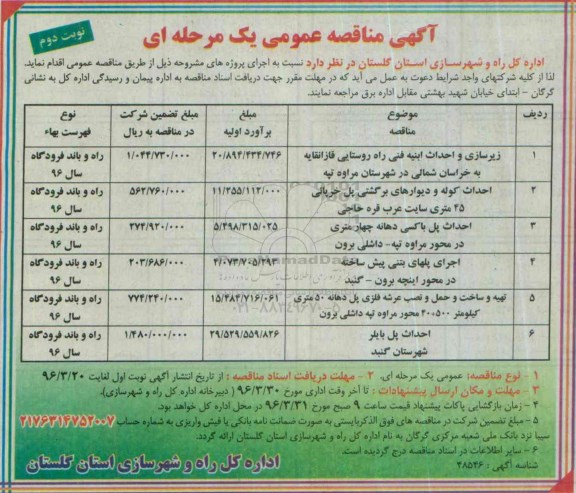 آگهی مناقصه عمومی یک مرحله ای
نوبت دوم
اداره کل راه و شهرسازی استان گلستان در نظر دارد نسبت به اجرای پروژه های مشروحه ذیل از طریق مناقصه عمومی اقدام نماید.
لذا از کلیه شرکتهای واجد شرایط دعوت به عمل می آید که در مهلت مقرر جهت دریافت اسناد مناقصه به اداره پیمان و رسیدگی اداره کل به نشانی
گرگان - ابتدای خیابان شهید بهشتی مقابل اداره برق مراجعه نمایند.
ردیف موضوع مناقصه مبلغ برآورد اولیه مبلغ تضمین شرکت در مناقصه به ریال نوع فهرست بهاء
۱ زیرسازی و احداث ابنیه فنی راه روستایی قازانقایه ۲۰/۸۹۴/۴۳۴/۷۴۶ ۱/۰۴۴/۷۳۰/۰۰۰ راه و باند فرودگاه
به خراسان شمالی در شهرستان مراوه تپه سال ۹۶
۲ احداث کوله و دیوارهای برگشتی پل خرپائی ۱۱/۲۵۵/۱۱۲/۰۰۰ ۵۶۲/۷۶۰/۰۰۰ راه و باند فرودگاه
۴۵ متری سایت عرب قره حاجی سال ۹۶
۳ احداث پل باکسی دهانه چهار متری ۵/۴۹۸/۳۱۵/۰۲۵ ۲۷۴/۹۲۰/۰۰۰ راه و باند فرودگاه
در محور مراوه تپه- داشلی برون سال ۹۶
۴ اجرای پلهای بتنی پیش ساخته ۴/۰۷۳/۷۰۵/۲۹۳ ۲۰۳/۶۸۶/۰۰۰ راه و باند فرودگاه
در محور اینچه برون - گنبد سال ۹۶
۵ تهیه و ساخت و حمل و نصب عرشه فلزی پل دهانه ۵۰ متری ۱۵/۴۸۴/۷۱۶/۰۶۱ ۷۷۴/۲۴۰/۰۰۰ راه و باند فرودگاه
کیلومتر ۴۰۰+۲۰ محور مراوه تپه داشلی برون سال ۹۶
۶ احداث پل بایلر ۲۹/۵۲۹/۵۵۹/۸۲۶ ۱/۴۸۰/۰۰۰/۰۰۰ راه و باند فرودگاه
شهرستان گنبد سال ۹۶
۱ - نوع مناقصه: عمومی یک مرحله ای. ۲ - مهلت دریافت اسناد مناقصه : از تاریخ انتشار آگهی نوبت اول لغایت ۹۶/۳/۲۰
۳ - مهلت و مکان ارسال پیشنهادات : تا آخر وقت اداری مورخ ۹۶/۳/۳۰ ( دبیرخانه اداره کل راه و شهرسازی).
۴ - زمان بازگشایی پاکات پیشنهاد قیمت ساعت ۹ صبح مورخ ۹۶/۳/۳۱ در محل اداره کل خواهد بود.
۵ - مبلغ تضمین شرکت در مناقصه های فوق الذکر بایستی به صورت ضمانت نامه بانکی یا فیش واریزی به شماره حساب ۲۱۷۶۳۱۶۷۵۲۰۰۷
سیبا نزد بانک ملی شعبه مرکزی گرگان به نام اداره کل راه و شهرسازی استان گلستان ارائه گردد.
۶ - سایر اطلاعات در اسناد مناقصه درج گردیده است.
شناسه آگهی : ۲۸۵۴۶
اداره کل راه و شهرسازی استان گلستان